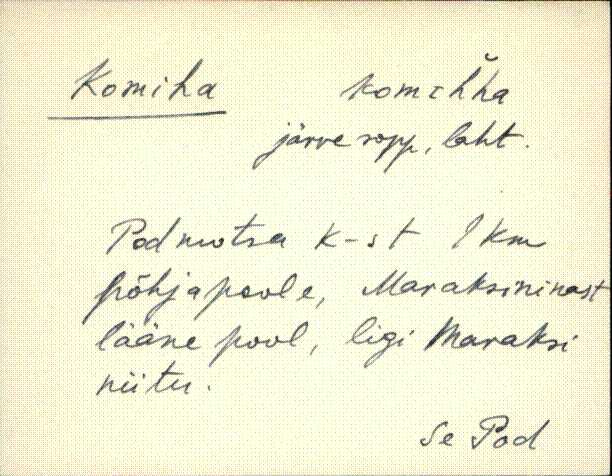 Komiha komιh̆ha
järve sopp, laht.
Podmotsa k-st 1 km
põhjapoole, Maraksininast
lääne pool, ligi Maraksi
niitu.
Se Pod